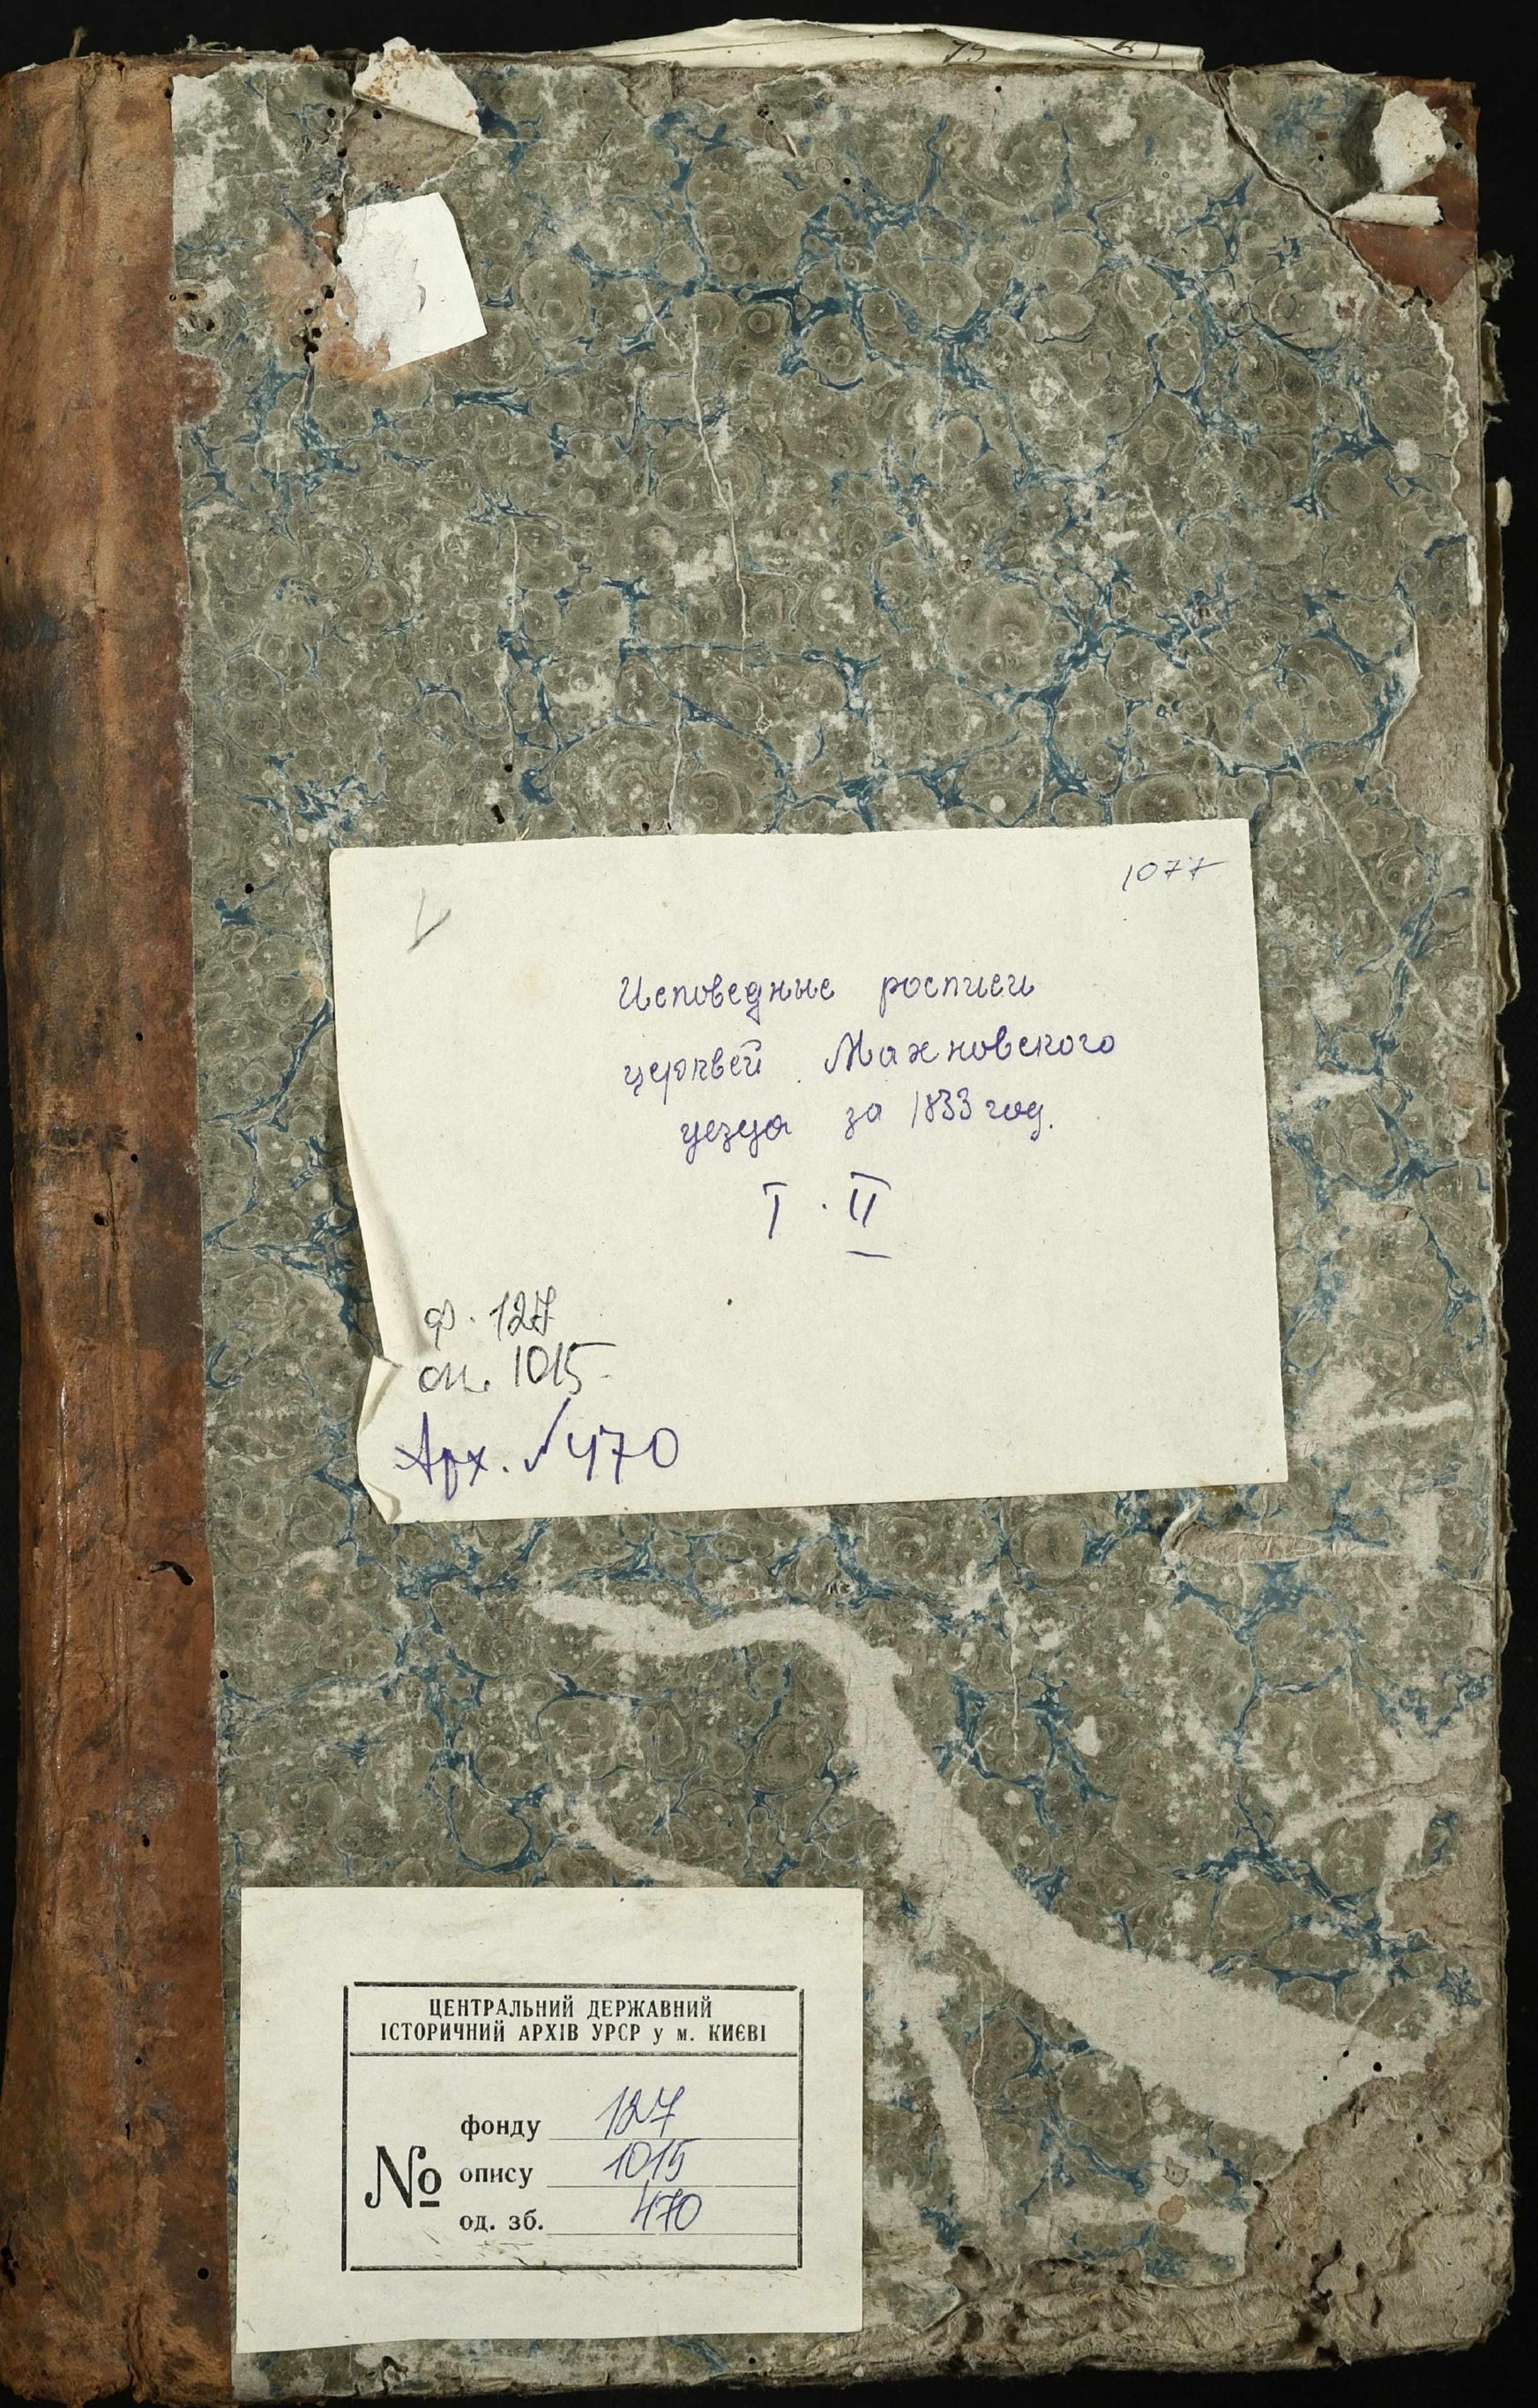 1077
Исповедные росписи
церквей Махновского
уезда за 1833 год.
Т. II
ф. 127
оп. 1015
Арх. № 470
ЦЕНТРАЛЬНИЙ ДЕРЖАВНИЙ
ІСТОРИЧНИЙ АРХІВ УРСР у м. КИЄВІ
№
фонду 127
опису 1015
од. зб. 470